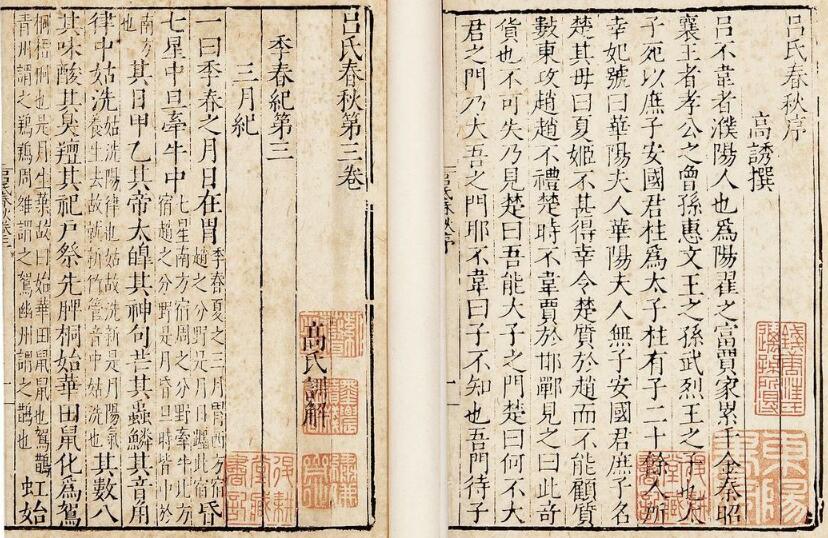 吕氏春秋序
高誘撰
吕不韋者濮陽人也爲陽翟之富賈家累千金秦昭
襄王者孝公之曾孫惠文王之孫武烈王之子也太
子死以庶子安國君柱爲太子柱有子二十餘人所
幸妃號曰華陽夫人華陽夫人無子安國君庶子名
楚其母曰夏姬不甚得幸令楚質於趙而不能顧質
數東攻趙趙不禮楚時不韋賈於邯鄲見之曰此奇
貨也不可失乃見楚曰吾能大子之門楚曰何不大
君之門乃大吾之門耶不韋曰子不知也吾門待子
吕氏春秋序
東陽
吕氏春秋第三卷
高氏訓解
季春紀第三
三月紀
一曰季春之月日在胃季春夏之三月胃西方宿趙之分野是月日躔此宿昏
七星中旦牽牛中七星南方宿周之分野牽牛北方宿趙之分野是月昏旦時皆中於
南方也其日甲乙其帝太皥其神句芒其蟲鱗其音角
律中姑洗姑洗陽律也姑故洗新是月陽氣養生去故就新竹管音中姑洗也其數八
其味酸其臭羶其祀户祭先脾桐始華田鼠化爲鴽
桐梧桐也是月生葉故曰始華田鼠鼠也鴽鶉青州謂之周雒謂之鴽幽州謂之也虹始
吕氏春秋卷三
一